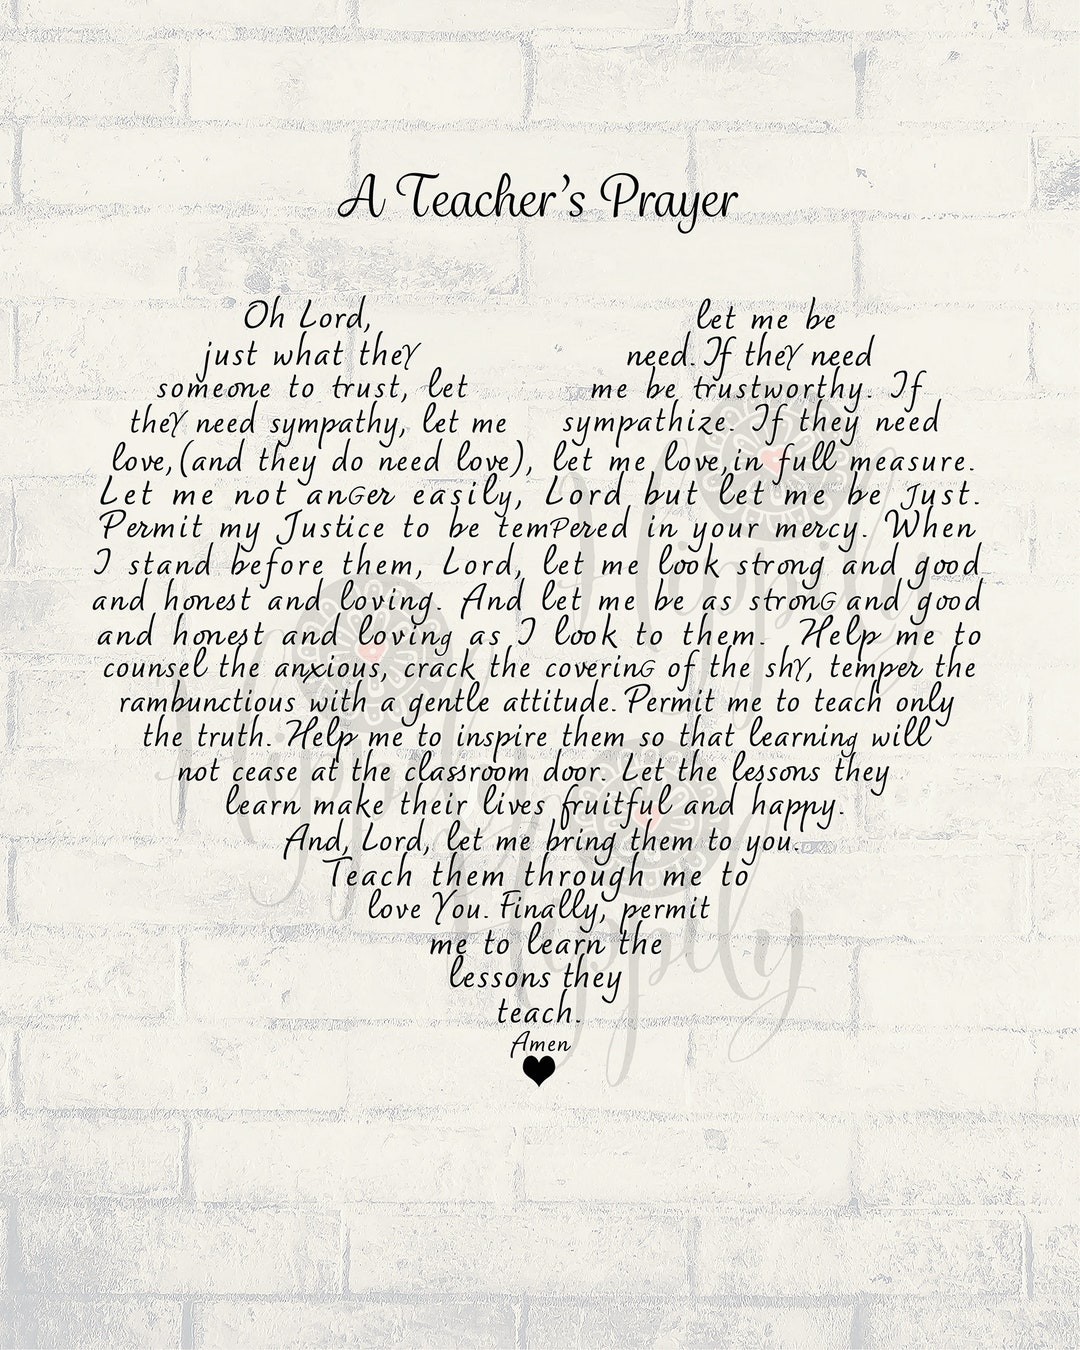 A Teacher's Prayer
Oh Lord, let me be
just what they need. If they need
someone to trust, let me be trustworthy. If
they need sympathy, let me sympathize. If they need
love, (and they do need love), let me love, in full measure.
Let me not anger easily, Lord but let me be just.
Permit my Justice to be tempered in your mercy. When
I stand before them, Lord, let me look strong and good
and honest and loving. And let me be as strong and good
and honest and loving as I look to them. Help me to
counsel the anxious, crack the covering of the shy, temper the
rambunctious with a gentle attitude. Permit me to teach only
the truth. Help me to inspire them so that learning will
not cease at the classroom door. Let the lessons they
learn make their lives fruitful and happy.
And, Lord, let me bring them to you.
Teach them through me to
love You. Finally, permit
me to learn the
lessons they
teach.
Amen
Hippily
Hippily
Hippily